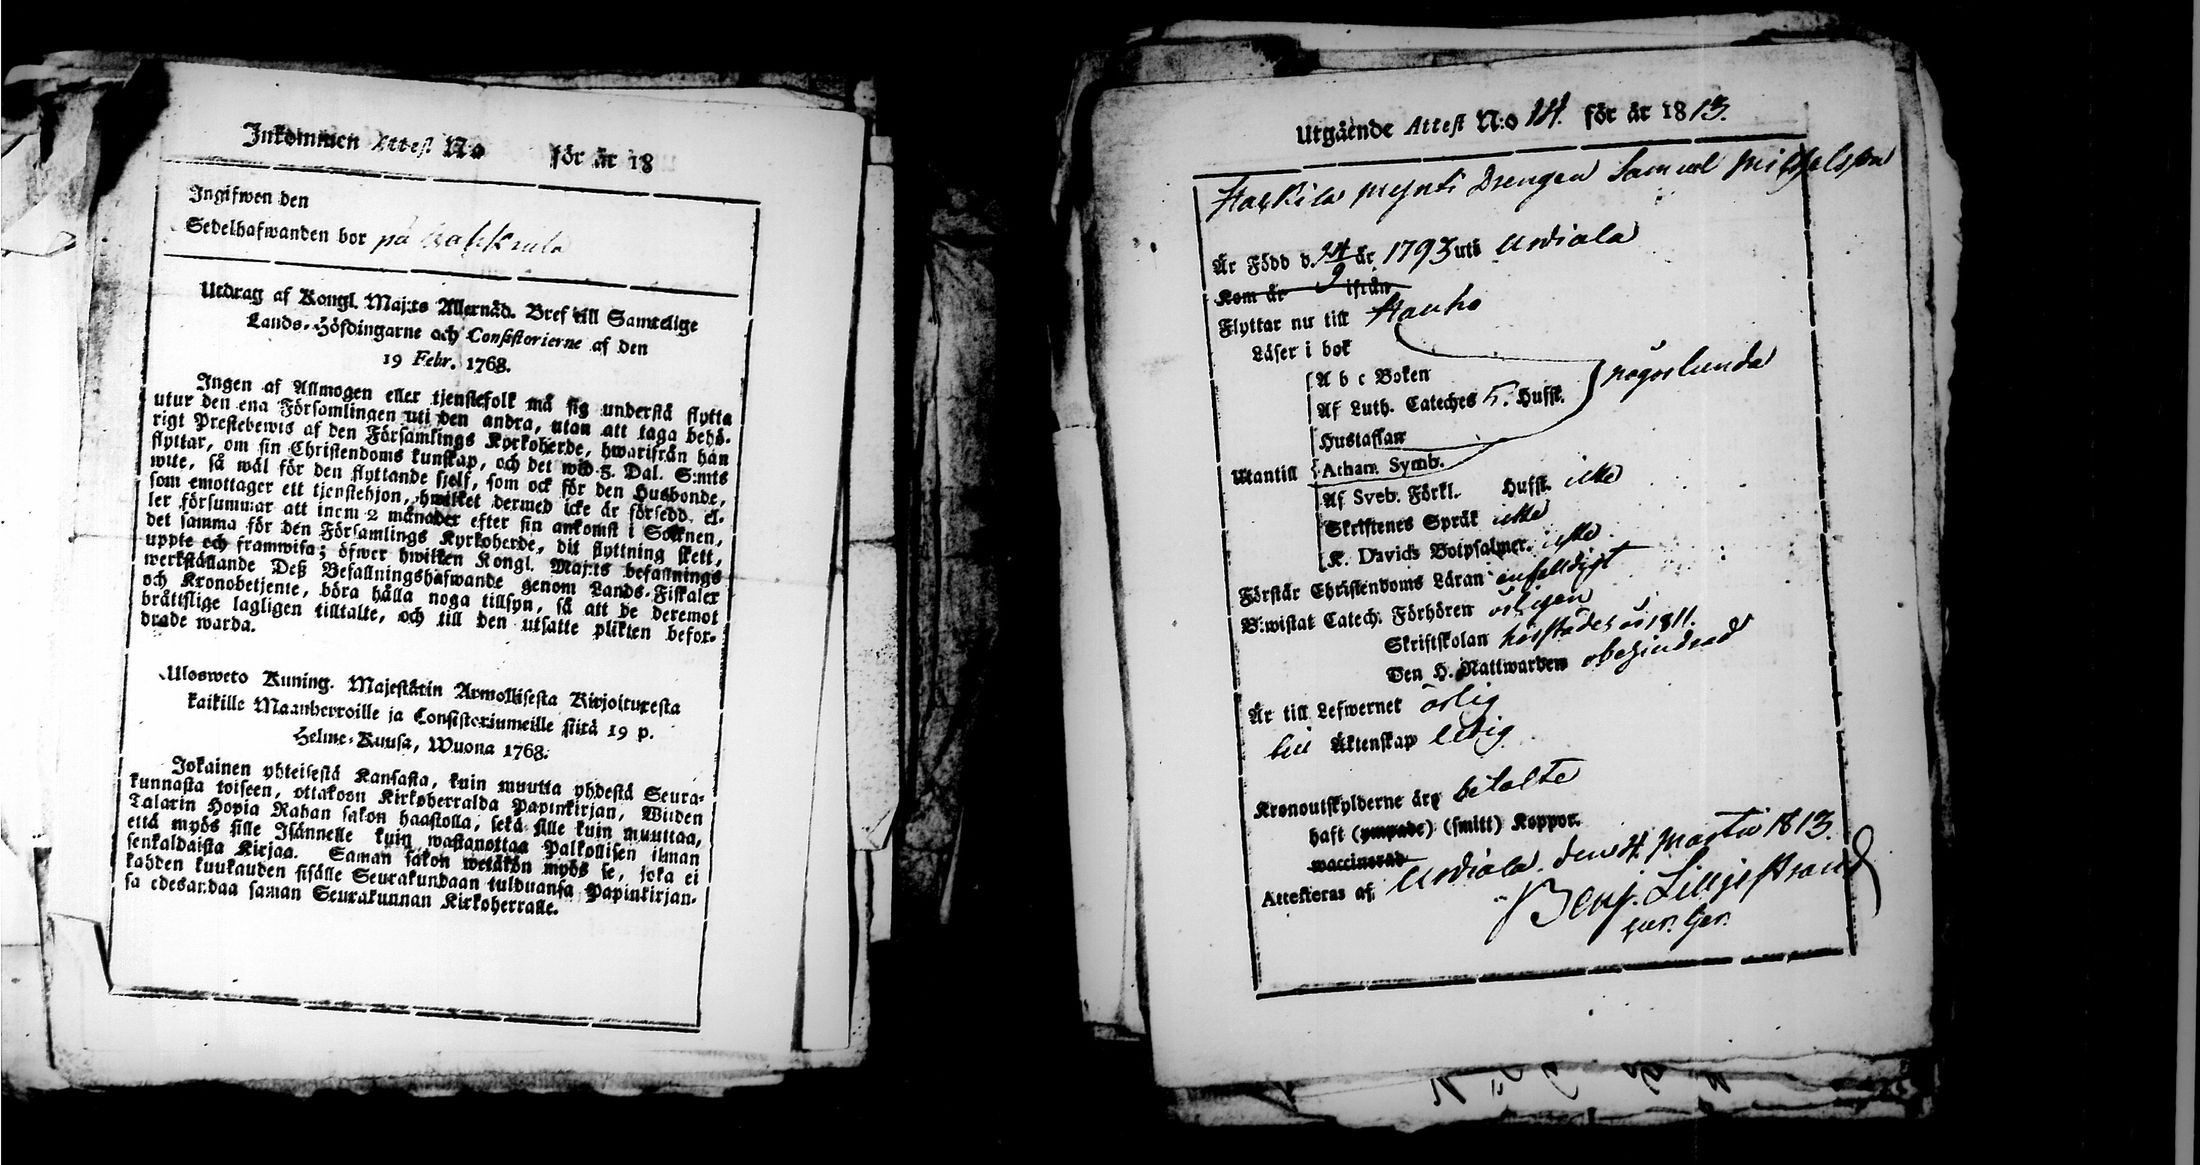 Inkommen Attest N:o för år 18
Ingifwen den
Sedelhafwanden bor på
Utdrag af Kongl. Maj:ts Allernåd. Bref till Samtelige
Lands-Höfdingarne och Consistorierne af den
19 Febr. 1768.
Ingen af Allmogen eller tjenstefolk må sig understå flytta
utur den ena Församlingen uti den andra, utan att taga behö-
rigt Prestebewis af den Församlings Kyrkoherde, hwarifrån han
flyttar, om sin Christendoms kunskap, och det wid 5. Dal. S:mts
wite, så wäl för den flyttande sjelf, som ock för den Husbonde,
som emottager ett tjenstehjon, hwilket dermed icke är försedd, el-
ler försummar att inom 2 månader efter sin ankomst i Socknen,
det samma för den Församlings Kyrkoherde, dit flyttning skett,
uppte och framwisa; öfwer hwilken Kongl. Maj:ts befallnings
werkställande Deß Befallningshafwande genom Lands-Fiskaler
och Kronobetjente, böra hålla noga tillsyn, så att de deremot
bråttslige lagligen tilltalte, och till den utsatte plikten befor-
drade warda.
Ulosweto Kuning. Majestätin Armollisesta Kirjoituxesta
kaikille Maanherroille ja Consistoriumeille siitä 19 p.
Helme-Kuusa, Wuona 1768.
Jokainen yhteisestä Kansasta, kuin muutta yhdestä Seura-
kunnasta toiseen, ottakoon Kirkoherralda Papinkirjan, Wiiden
Talarin Hopia Rahan sakon haastolla, sekä sille kuin muuttaa,
että myös sille Isännelle kuin wastanottaa Palkollisen ilman
senkaldaista Kirjaa. Saman sakon wetäkön myös se, joka ei
kahden kuukauden sisälle Seurakundaan tulduansa Papinkirjan-
sa edesandaa saman Seurakunnan Kirkoherralle.
Utgående Attest N:o 14. för år 1813.
Drengen Samuel Michelsson
Är Född d. 24/9 år 1793 uti Urdiala
Kom år ifrån
Flyttar nu till Hauho
Läser i bok
A b c Boken
Af Luth. Cateches 5. Hufst.
Hustaflan
Utantill Athan. Symb.
Af Sveb. Förkl. Hufst. icke
Skriftenes Språk icke
K. Davids Botpsalmer. icke
Förstår Christendoms Läran enfalldigt
B:wistat Catech. Förhören årligen
Skriftskolan härstädes år 1811.
Den H. Nattwarden obehindrad
Är till Lefwernet ärlig
till Äktenskap ledig
Kronoutskylderne äro betalte
haft (ympade) (smitt) Koppor.
waccinerad
Attesteras af, Urdiala den 4 Martii 1813.
Benj. Lilljestrand